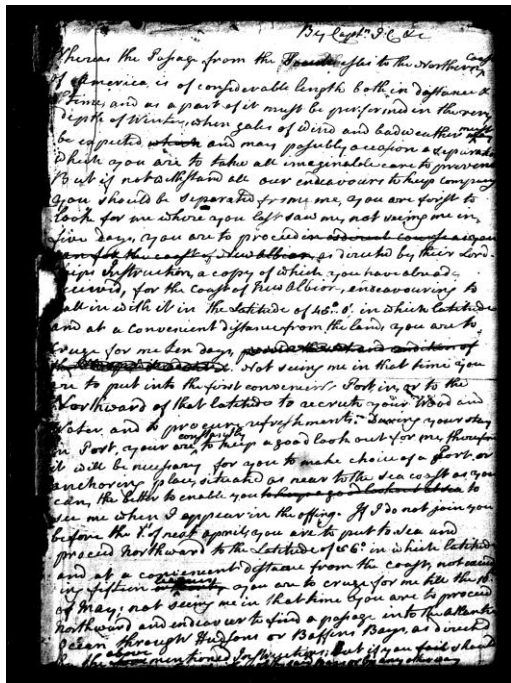 By Capt.n J. C. &c
Whereas the Passage from the Isles to the Northern Coast
of America, is of considerable length both in distance &
time, and as a part of it must be performed in the very
depth of Winter, when gales of Wind and bad weather must
be expected and may possibly occasion a separation
which you are to take all imaginable care to prevent
But if notwithstand all our endeavours to keep company
you should be separated from me, you are first to
look for me where you last saw me, not seeing me in
five days, you are to proceed as directed by their Lord-
ships Instruction, a coppy of which you have already
received, for the Coast of New Albion, endeavouring to
fall in with it in the Latitude of 45°. 0'. in which latitude
and at a convenient distance from the land, you are to
cruze for me ten days, Not seeing me in that time you
are to put into the first convenient Port in, or to the
Northward of that latitude to recruit your Wood and
Water, and to procure refreshments. During your stay
in Port, your are constantly to keep a good look out for me, therefore
it will be necessary for you to make choise of a Port, or
anchoring place, situated as near to the sea coast as you
can, the better to enable you to
see me when I appear in the offing. If I do not join you
before the 1st. of next april, you are to put to sea and
proceed Northward to the Latitude of 56°. in which latitude
and at a convenient distance from the coast, not exceed
ing fifteen leagues you are to cruze for me till the 10
of May: not seeing me in that time you are to proceed
Northward and endeavour to find a passage into the atlantic
Ocean through Hudsons or Baffins Bays, as directed
above mentioned Instruction; But if you fail should